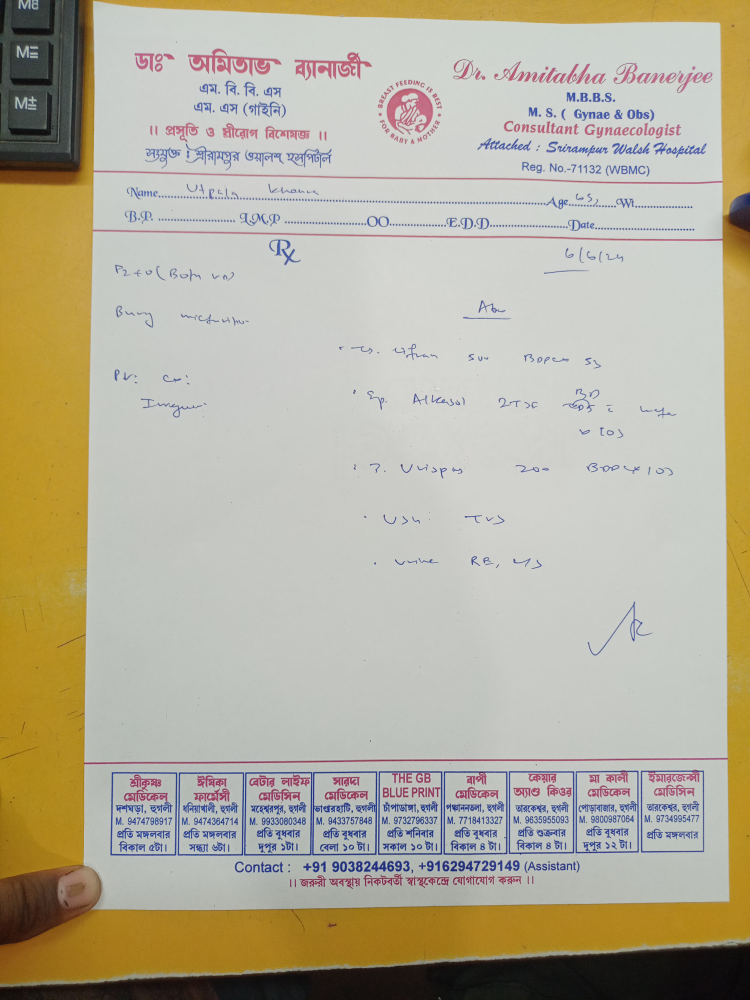 M≡
M±
ডাঃ অমিতাভ ব্যানার্জী
এম. বি. বি. এস
এম. এস (গাইনি)
।। প্রসূতি ও স্ত্রীরোগ বিশেষজ্ঞ ।।
সংযুক্ত : শ্রীরামপুর ওয়ালশ হসপিটাল
BREAST FEEDING IS BEST
FOR BABY & MOTHER
Dr. Amitabha Banerjee
M.B.B.S.
M. S. ( Gynae & Obs)
Consultant Gynaecologist
Attached : Srirampur Walsh Hospital
Reg. No.-71132 (WBMC)
Name Utpala Age 65, Wt
B.P. L.M.P OO E.D.D Date
Rx
6/6/24
P2+0 (Both VD)
Adv
500 5D
PV: Cx:
Syp. Alkasol 2TSF BD
x 10D
T. Urispas 200 x 10D
USG TVS
Urine RE, C/S
শ্রীকৃষ্ণ মেডিকেল
দশঘড়া, হুগলী
M. 9474798917
প্রতি মঙ্গলবার
বিকাল ৫টা।
ঈশিকা ফার্মেসী
ধনিয়াখালী, হুগলী
M. 9474364714
প্রতি মঙ্গলবার
সন্ধ্যা ৬টা।
বেটার লাইফ মেডিসিন
মহেশ্বরপুর, হুগলী
M. 9933080348
প্রতি বুধবার
দুপুর ১টা।
সারদা মেডিকেল
ভাণ্ডারহাটি, হুগলী
M. 9433757848
প্রতি বুধবার
বেলা ১০ টা।
THE GB BLUE PRINT
চাঁপাডাঙ্গা, হুগলী
M. 9732796337
প্রতি শনিবার
সকাল ১০ টা।
বাপী মেডিকেল
পঞ্চাননতলা, হুগলী
M. 7718413327
প্রতি বুধবার
বিকাল ৪ টা।
কেয়ার অ্যাণ্ড কিওর
তারকেশ্বর, হুগলী
M. 9635955093
প্রতি শুক্রবার
বিকাল ৪ টা।
মা কালী মেডিকেল
পোড়াবাজার, হুগলী
M. 9800987064
প্রতি বুধবার
দুপুর ১২ টা।
ইমারজেন্সী মেডিসিন
তারকেশ্বর, হুগলী
M. 9734995477
প্রতি মঙ্গলবার
Contact : +91 9038244693, +916294729149 (Assistant)
।। জরুরী অবস্থায় নিকটবর্তী স্বাস্থ্যকেন্দ্রে যোগাযোগ করুন ।।